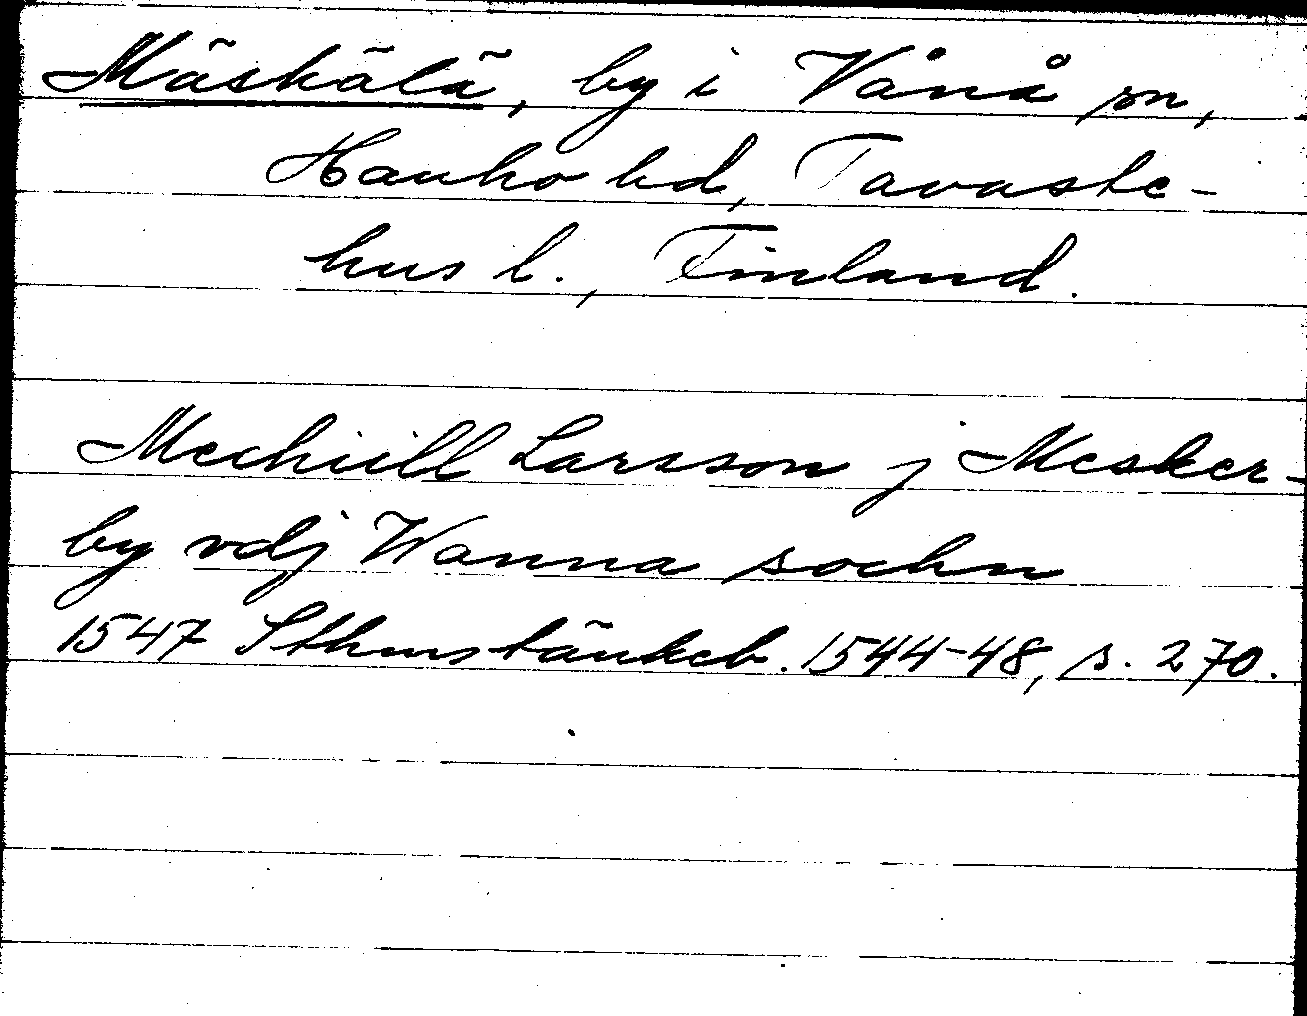 Mäskälä, by i Vånå sn,
Hauho hd, Tavaste-
hus l., Finland.
Mechiill Larsson j Mesker-
by vdj Wanna sochn
1547 Sthms tänkeb. 1544-48, s. 270.